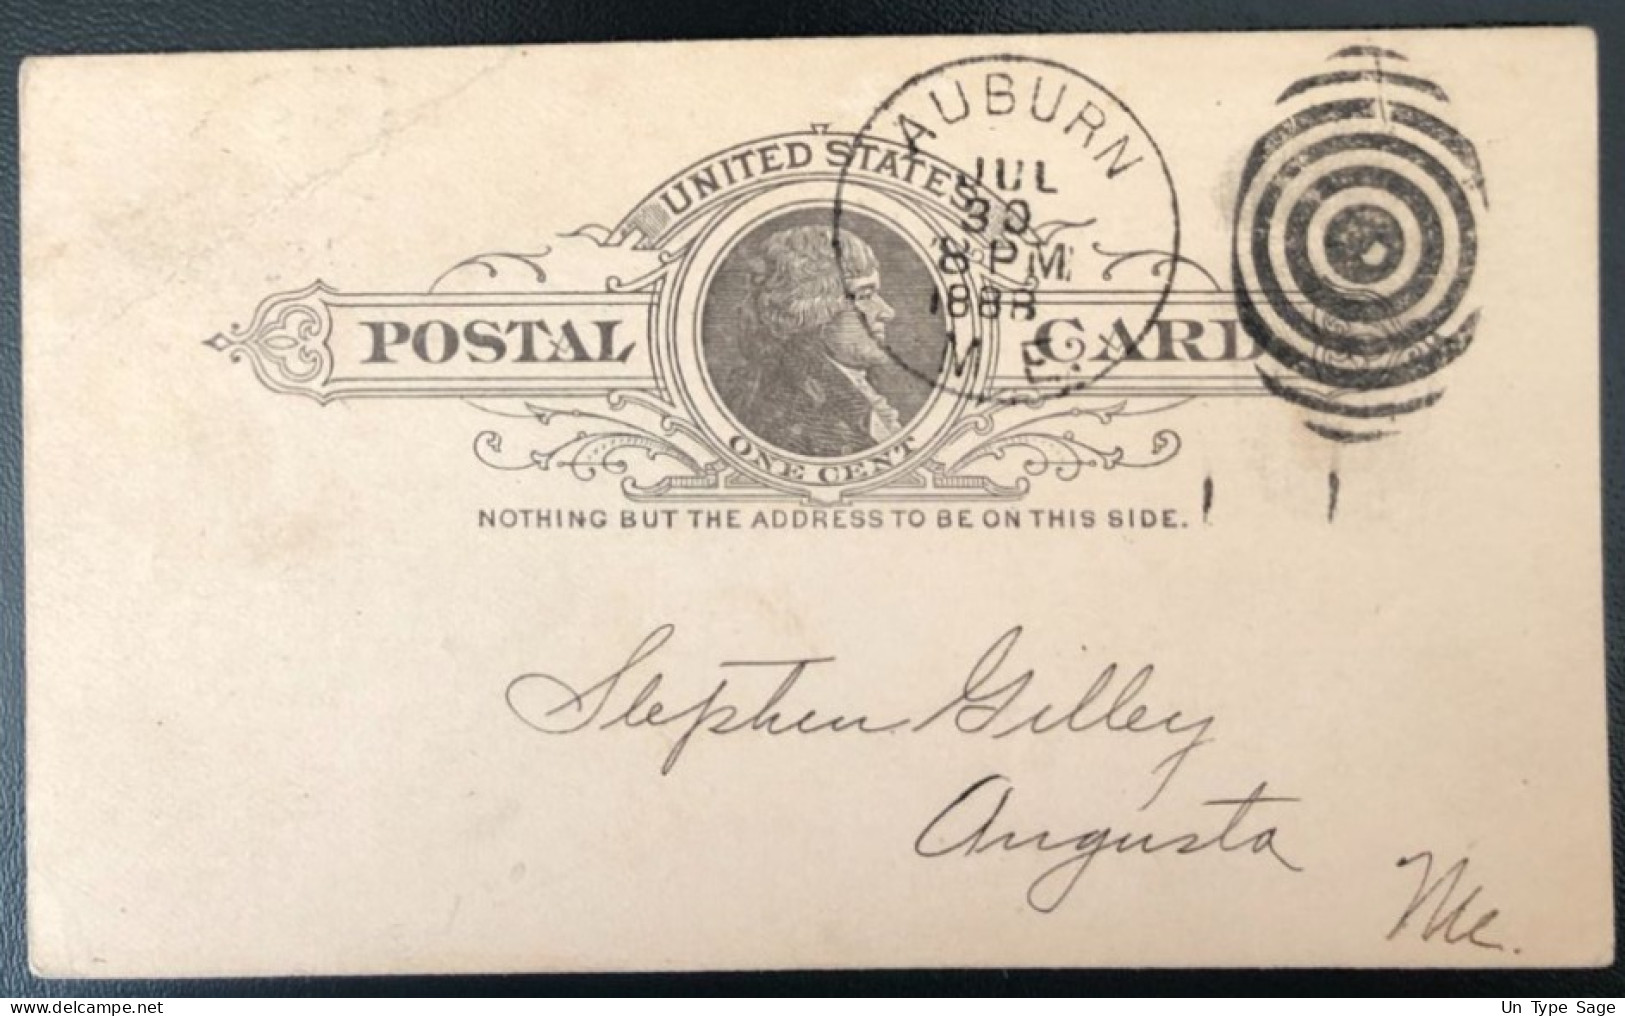 UNITED STATES
POSTAL CARD
ONE CENT
NOTHING BUT THE ADDRESS TO BE ON THIS SIDE.
AUBURN
JUL
30
8 PM
1888
ME.
Stephen Gilley
Augusta
Me.
www.delcampe.net
Un Type Sage